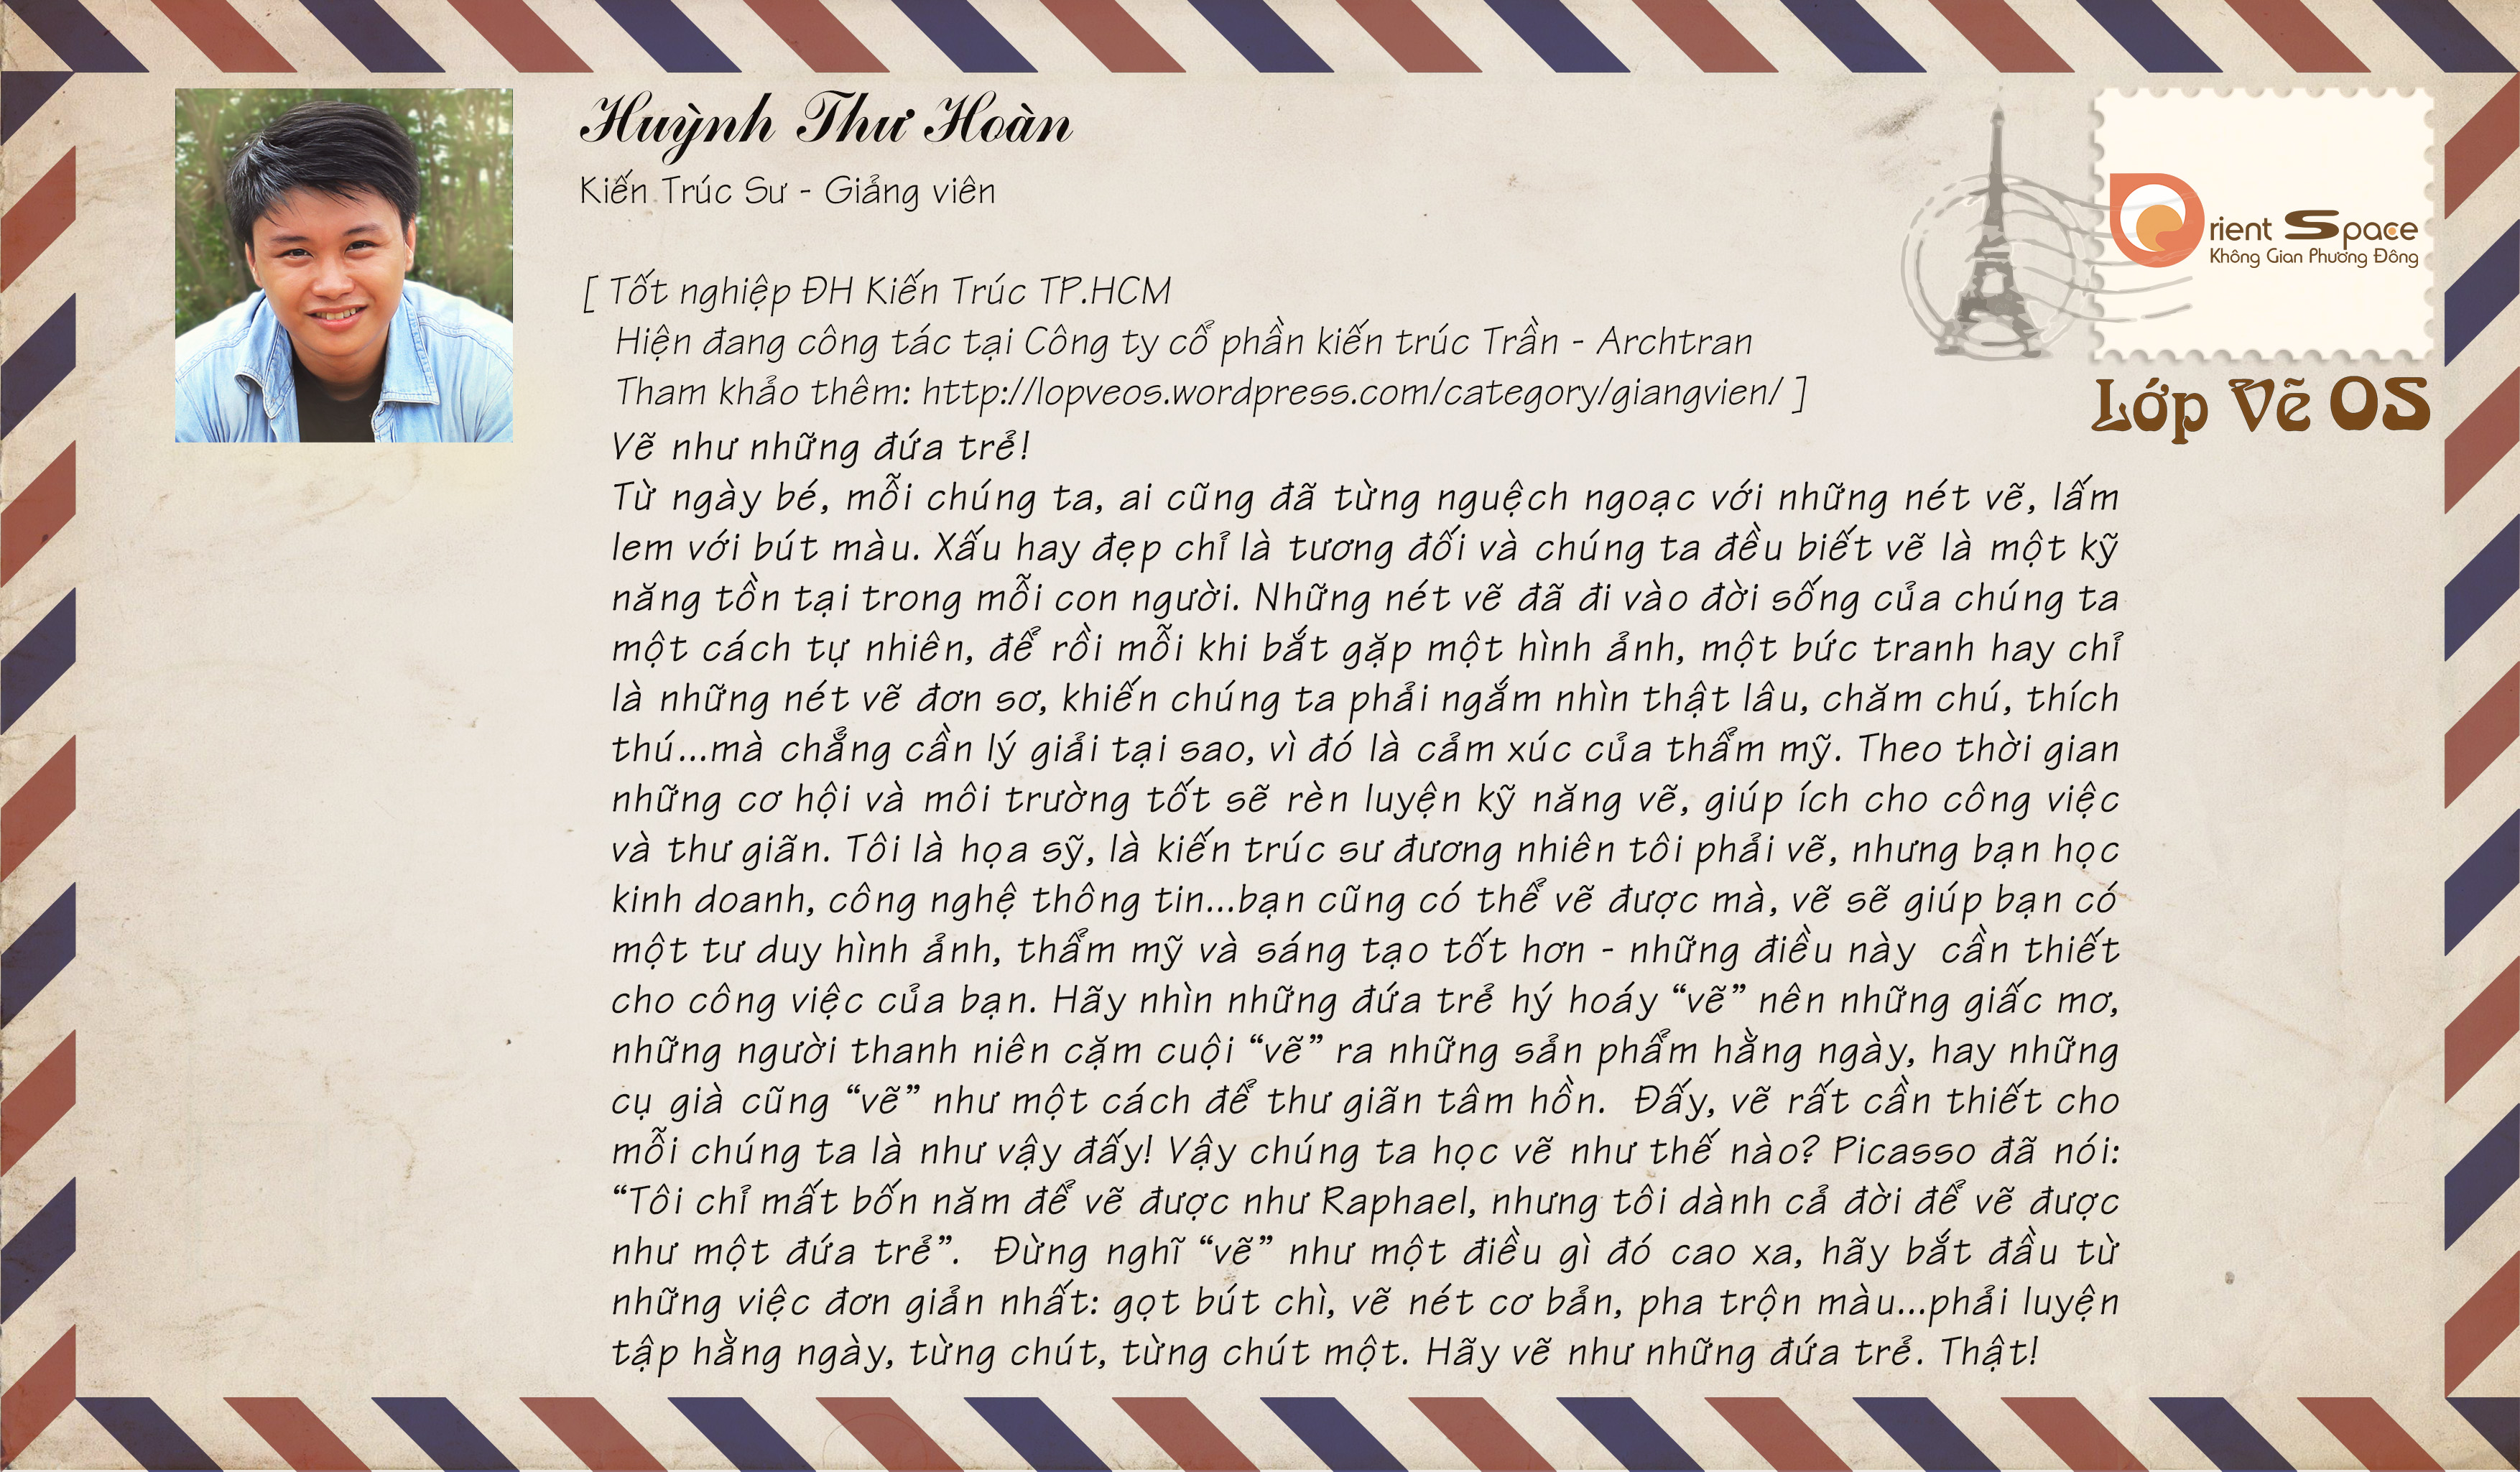 Huỳnh Thư Hoàn
Kiến Trúc Sư - Giảng viên
Orient Space
Không Gian Phương Đông
Lớp Vẽ OS
[ Tốt nghiệp ĐH Kiến Trúc TP.HCM
Hiện đang công tác tại Công ty cổ phần kiến trúc Trần - Archtran
Tham khảo thêm: http://lopveos.wordpress.com/category/giangvien/ ]
Vẽ như những đứa trẻ!
Từ ngày bé, mỗi chúng ta, ai cũng đã từng nguệch ngoạc với những nét vẽ, lấm
lem với bút màu. Xấu hay đẹp chỉ là tương đối và chúng ta đều biết vẽ là một kỹ
năng tồn tại trong mỗi con người. Những nét vẽ đã đi vào đời sống của chúng ta
một cách tự nhiên, để rồi mỗi khi bắt gặp một hình ảnh, một bức tranh hay chỉ
là những nét vẽ đơn sơ, khiến chúng ta phải ngắm nhìn thật lâu, chăm chú, thích
thú...mà chẳng cần lý giải tại sao, vì đó là cảm xúc của thẩm mỹ. Theo thời gian
những cơ hội và môi trường tốt sẽ rèn luyện kỹ năng vẽ, giúp ích cho công việc
và thư giãn. Tôi là họa sỹ, là kiến trúc sư đương nhiên tôi phải vẽ, nhưng bạn học
kinh doanh, công nghệ thông tin...bạn cũng có thể vẽ được mà, vẽ sẽ giúp bạn có
một tư duy hình ảnh, thẩm mỹ và sáng tạo tốt hơn - những điều này cần thiết
cho công việc của bạn. Hãy nhìn những đứa trẻ hý hoáy “vẽ” nên những giấc mơ,
những người thanh niên cặm cuội “vẽ” ra những sản phẩm hằng ngày, hay những
cụ già cũng “vẽ” như một cách để thư giãn tâm hồn. Đấy, vẽ rất cần thiết cho
mỗi chúng ta là như vậy đấy! Vậy chúng ta học vẽ như thế nào? Picasso đã nói:
“Tôi chỉ mất bốn năm để vẽ được như Raphael, nhưng tôi dành cả đời để vẽ được
như một đứa trẻ”. Đừng nghĩ “vẽ” như một điều gì đó cao xa, hãy bắt đầu từ
những việc đơn giản nhất: gọt bút chì, vẽ nét cơ bản, pha trộn màu...phải luyện
tập hằng ngày, từng chút, từng chút một. Hãy vẽ như những đứa trẻ. Thật!